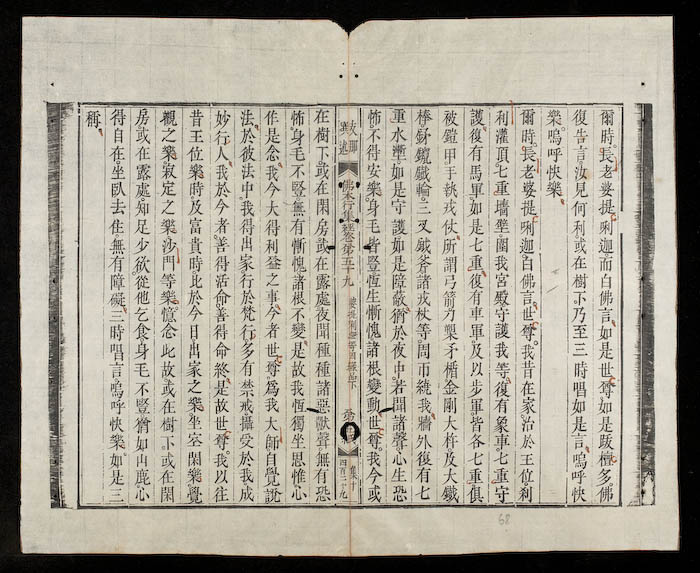 爾時長老婆提唎迦而白佛言如是世尊如是跋檀多佛
復告言汝見何利或在樹下乃至三時唱如是言嗚呼快
樂嗚呼快樂
爾時長老婆提唎迦白佛言世尊我昔在家治於王位利
利灌頂七重墻壁圍我宮殿守護我等復有象車七重守
護復有馬軍如是七重復有車軍及以步軍皆各七重俱
被鎧甲手執戎仗所謂弓箭刀槊矛楯金剛大杵及大鐵
棒鐵輪三叉鉞斧諸戎杖等周帀繞我牆外復有七
重水壍如是守護如是障蔽猶於夜中若聞諸聲心生恐
怖不得安樂身毛皆豎恆生慚愧諸根變動世尊我今或
撰述
佛本行集經卷第五十九
品下
集十
四百二十九
在樹下或在閑房或在露處夜聞種種諸惡獸聲無有恐
怖身毛不豎無有慚愧諸根不變是故我恆獨坐思惟心
作是念我今大得利益之事今者世尊爲我大師自覺說
法於彼法中我得出家行於梵行多有禁戒攝受於我成
妙行人我於今者善得活命善得命終是故世尊我以往
昔王位樂時及富貴時比於今日出家之樂坐空閑樂覺
觀之樂寂定之樂沙門等樂憶念此故或在樹下或在閑
房或在露處知足少欲從他乞食身毛不豎猶如山鹿心
得自在坐臥去住無有障礙三時唱言嗚呼快樂如是三
稱
68